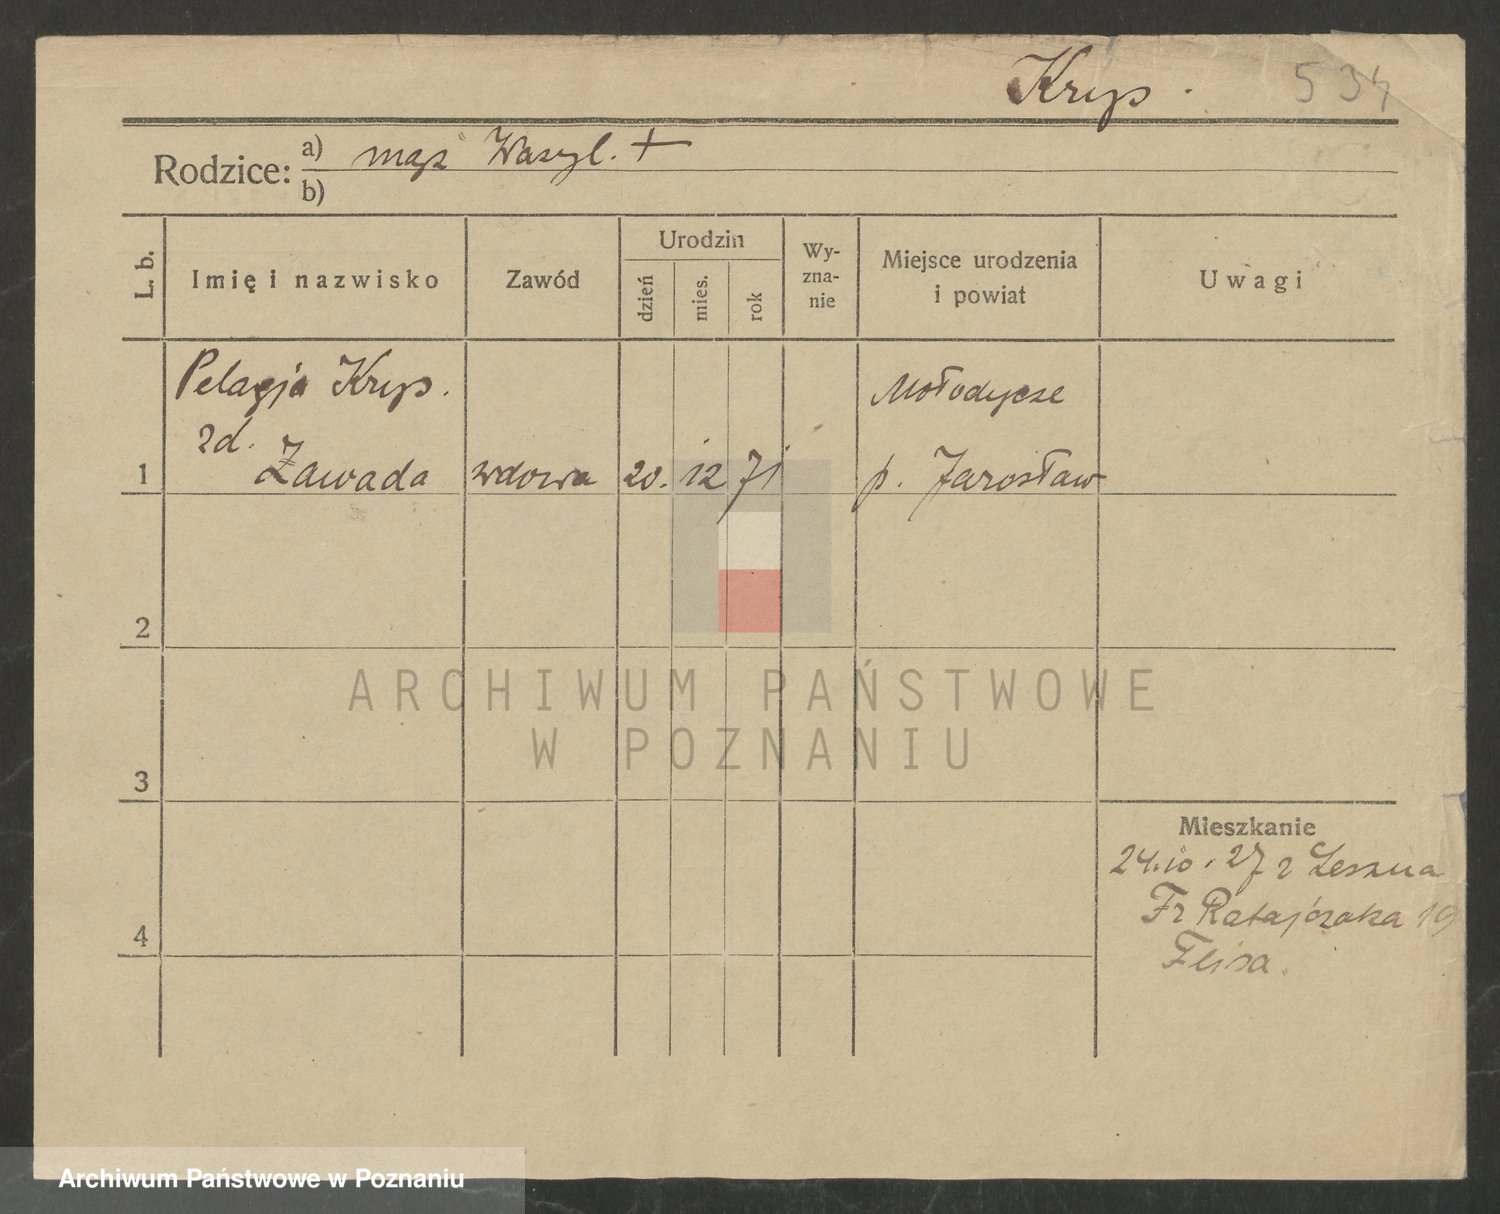 Kryp. 534
Rodzice: a) mąż Wasyl. +
b)
L. b.
Imię i nazwisko
Zawód
Urodzin
dzień
mies.
rok
Wy-
zna-
nie
Miejsce urodzenia
i powiat
Uwagi
Pelagja Kryp.
zd.
1 Zawada wdowa 20. 12 71
Mołodycze
p. Jarosław
2
3
4
ARCHIWUM PAŃSTWOWE
W POZNANIU
Mieszkanie
24.10.27 z Leszna
Fr Ratajczaka 19
Flisa.
Archiwum Państwowe w Poznaniu